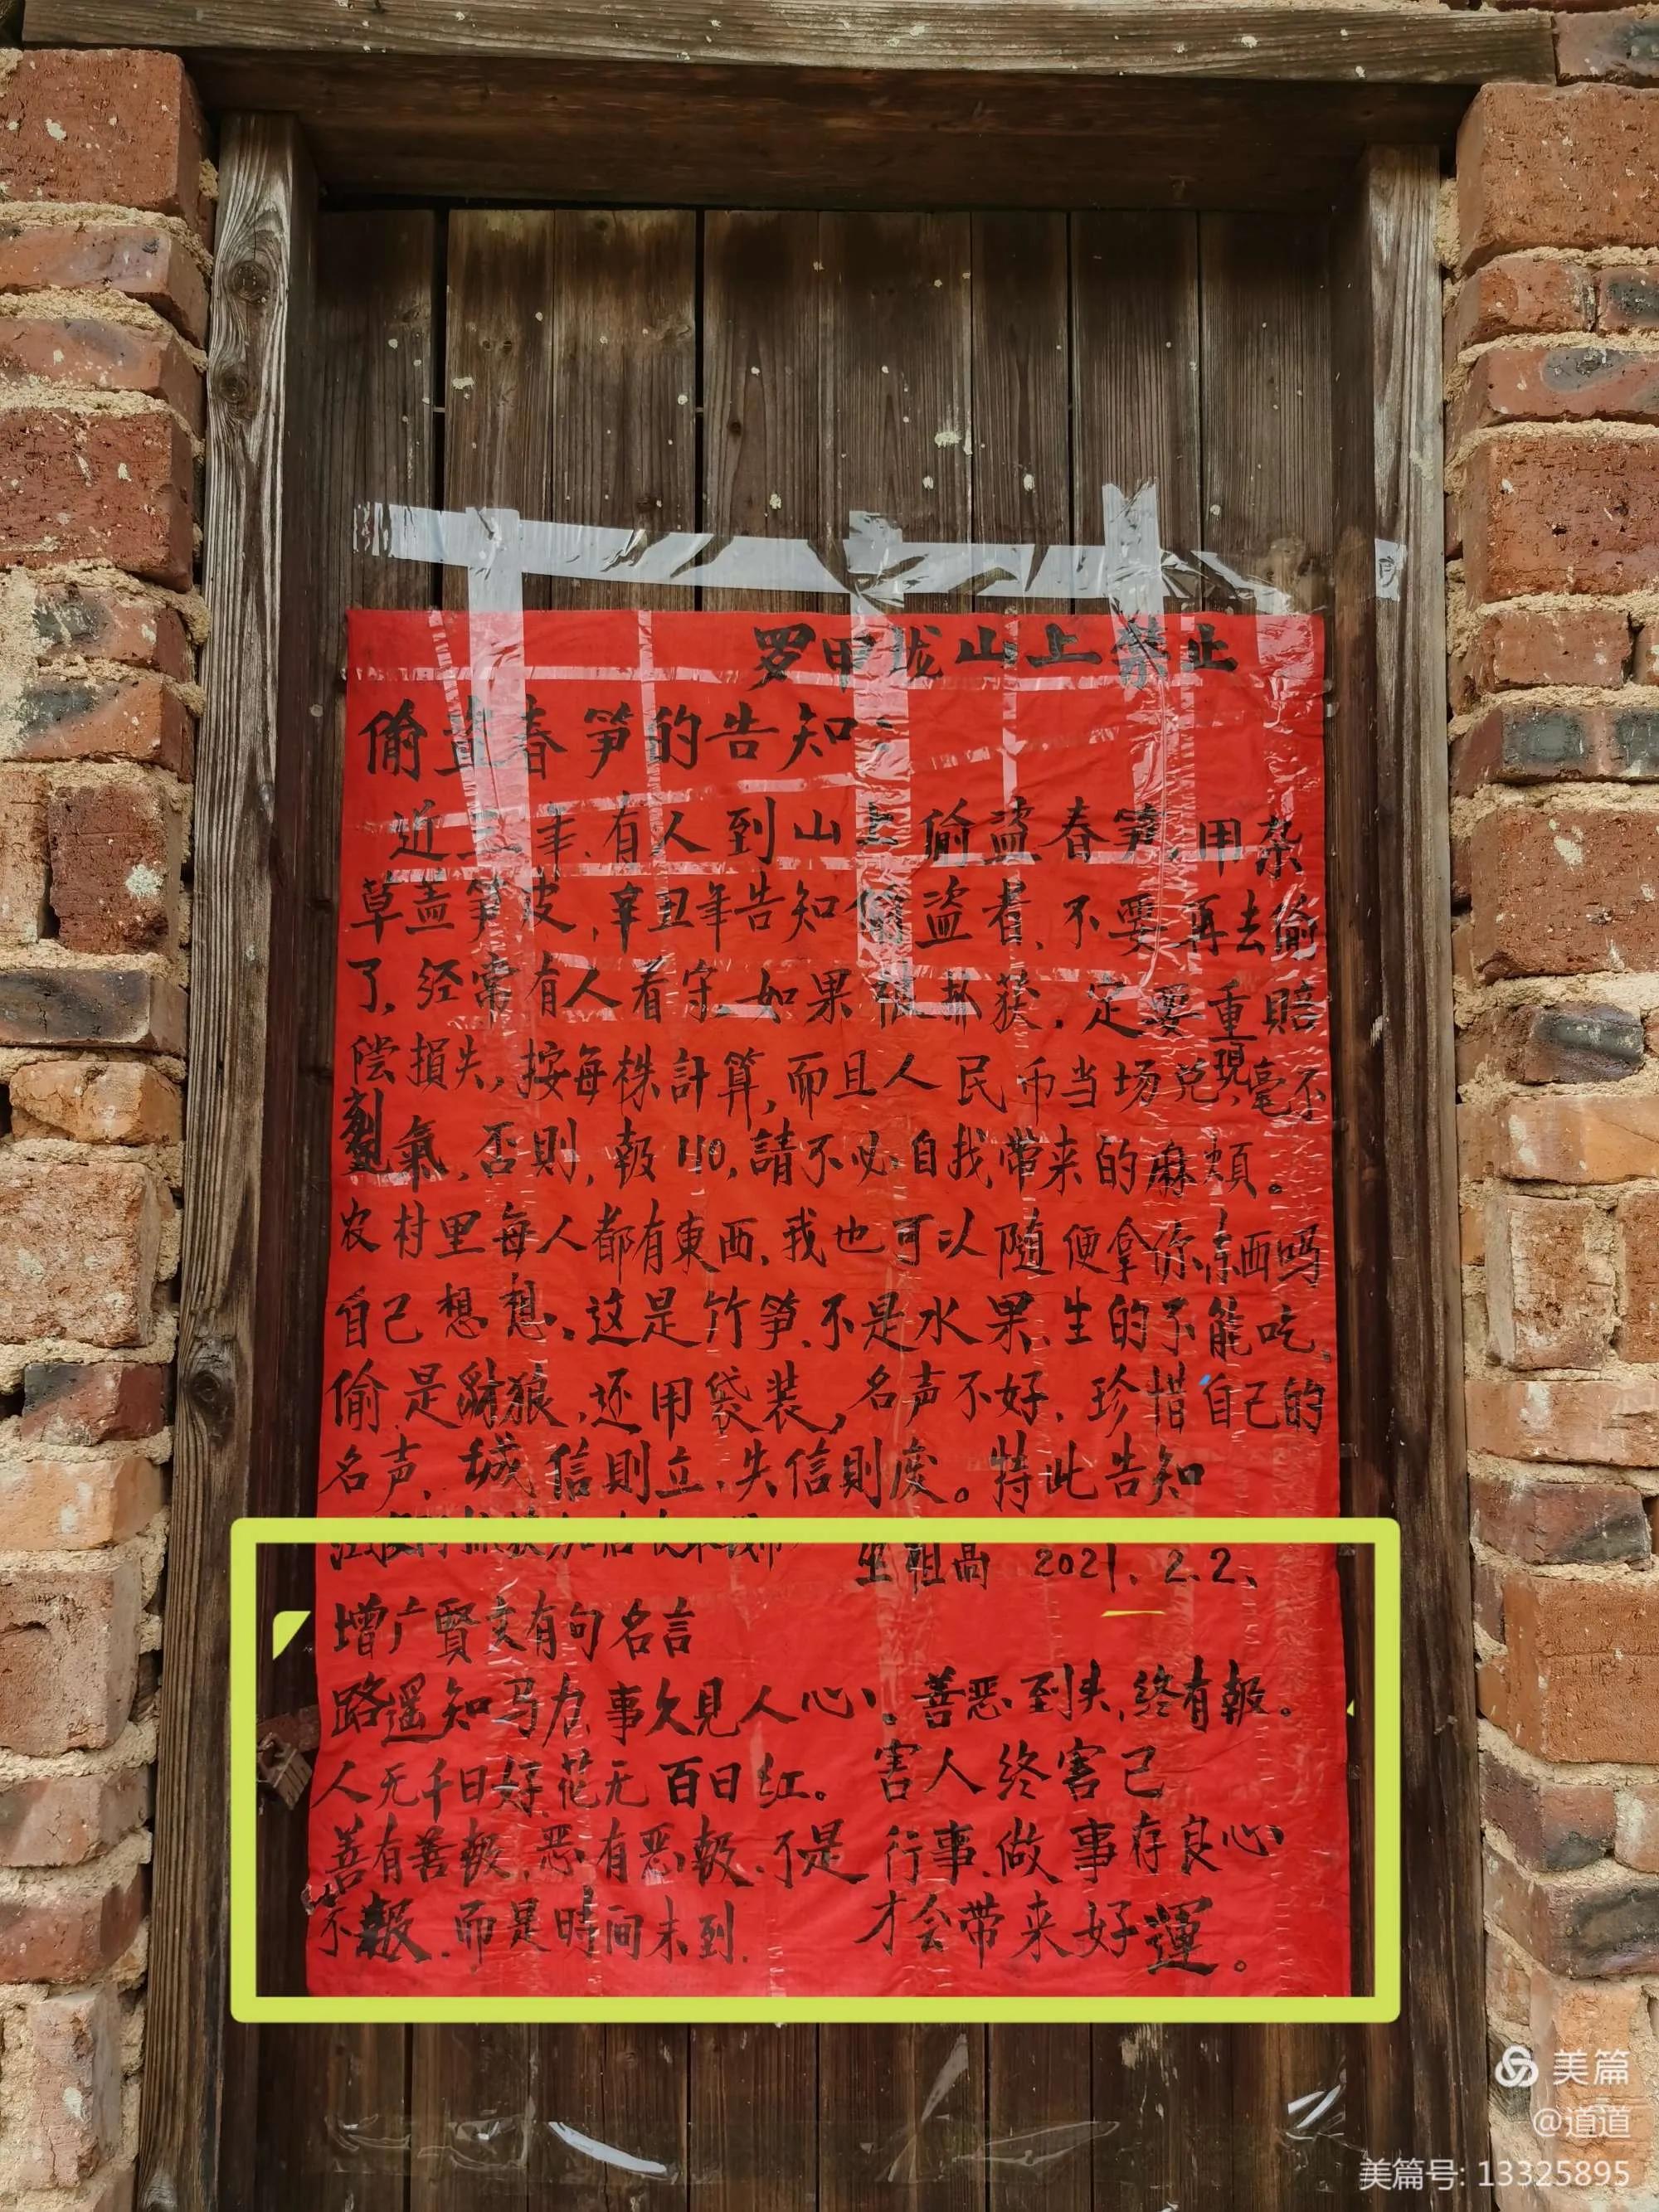 罗甲垅山上禁止
偷盗春笋的告知:
近三年,有人到山上偷盗春笋,用杂
草盖笋皮,辛丑年告知偷盗者,不要再去偷
了,经常有人看守,如果被抓获,定要重賠
偿損失,按每株計算,而且人民币当场兑現,毫不
氣,否則,報110,請不必自找带来的麻煩。
农村里每人都有東西,我也可以随便拿你東西吗
自己想想,这是竹笋,不是水果,生的不能吃,
偷是豺狼,还用袋装,名声不好,珍惜自己的
名声,城信則立,失信則废。特此告知
祖高 2021.2.2、
增广賢文有句名言
路遥知马力,事久見人心。善恶到头,終有報。
人无千日好,花无百日红。害人终害己
善有善報,恶有恶報,不是 行事,做事存良心
不報,而是時间未到. 才会带来好運。
美篇
@道道
美篇号: 13325895